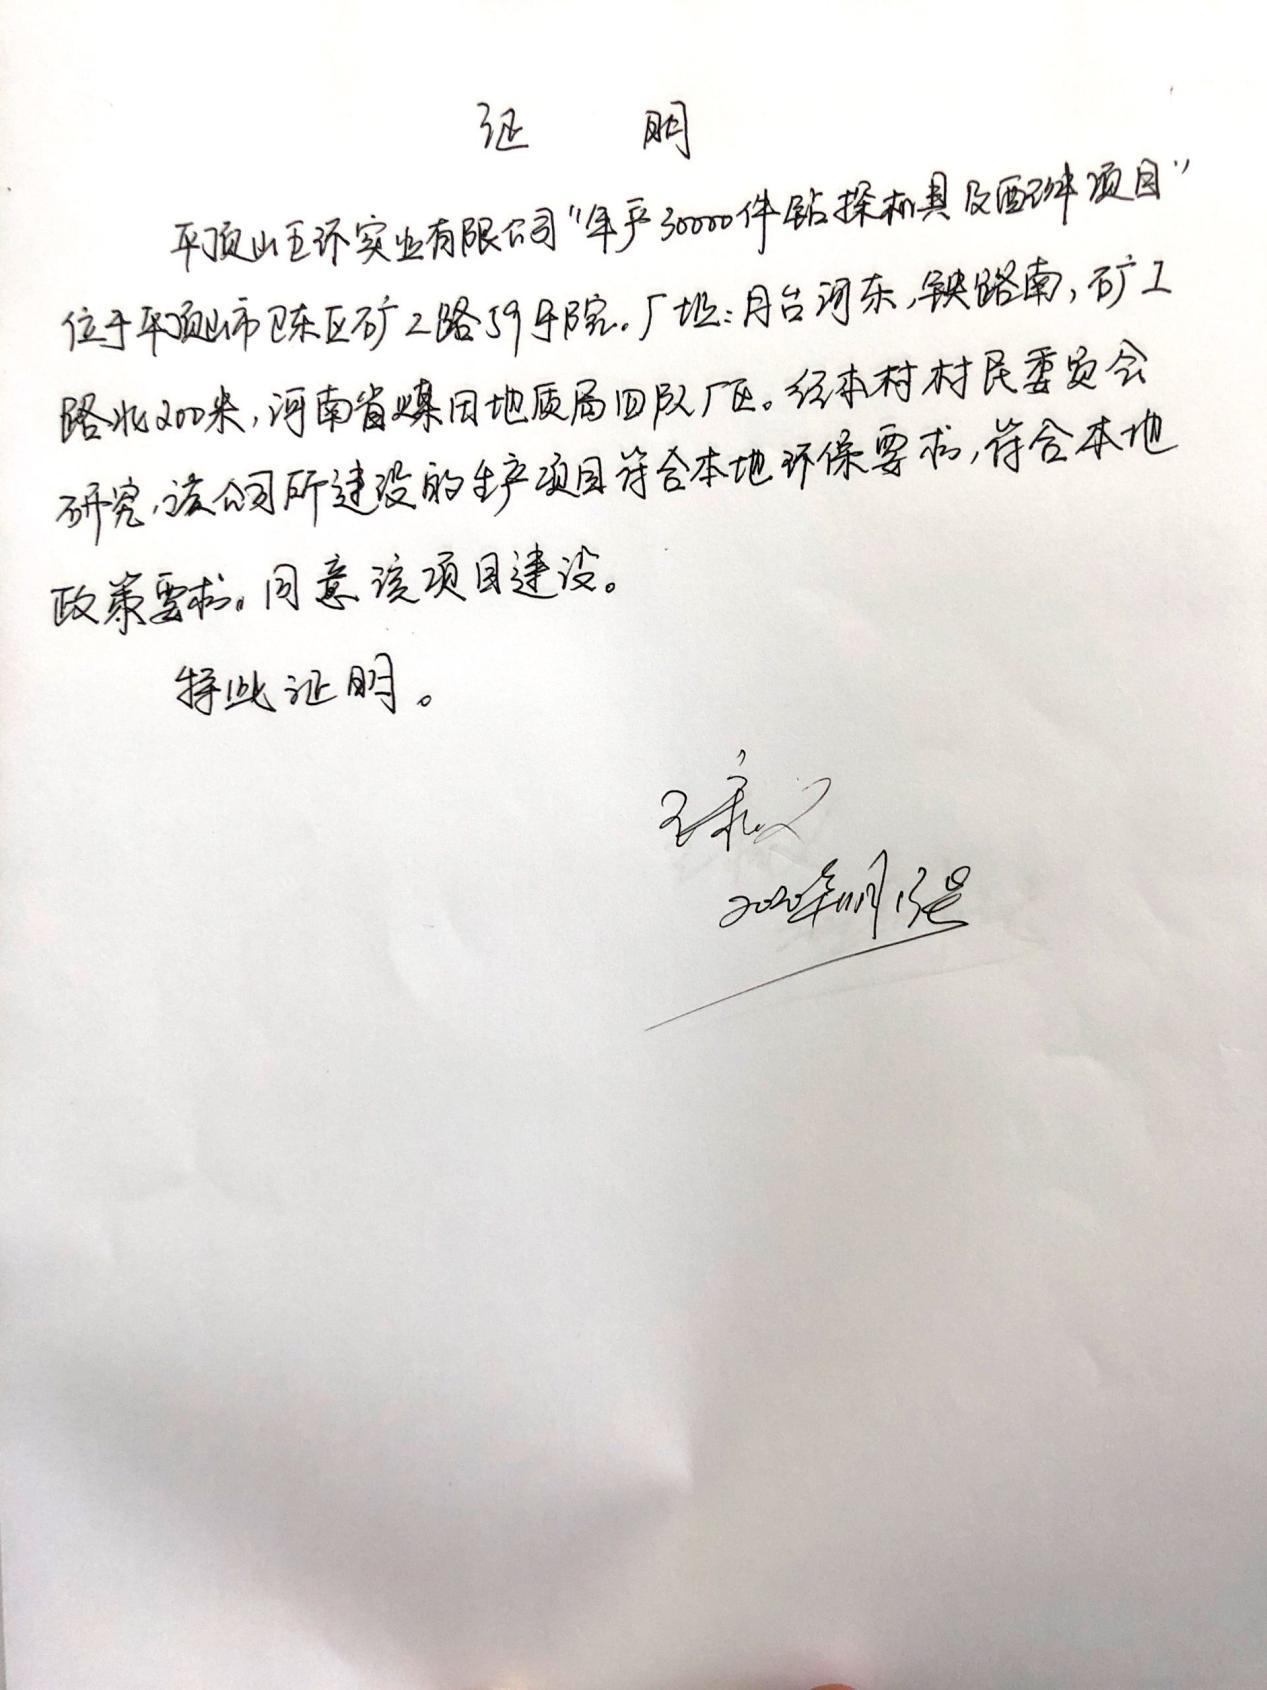 证 明
平顶山五环实业有限公司“年产30000件钻探机具及配件项目”
位于平顶山市卫东区矿工路59号院。厂址：月台河东，铁路南，矿工
路北200米，河南省煤田地质局四队厂区。经本村村民委员会
研究，该公司所建设的生产项目符合本地环保要求，符合本地
政策要求。同意该项目建设。
特此证明。
2020年11月13号